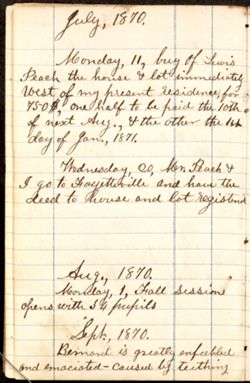 July, 1870.
Monday, 11, buy of Lewis
Peach the house & lot immediately
west of my present residence, for
750$, one half to be paid the 10th
of next Aug., & the other the 1st
day of Jan., 1871.
Wednesday, 20, Mr. Peach &
I go to Fayetteville and have the
deed to house and lot registered
Aug., 1870.
Monday, 1, Fall session
opens with 34 pupils
Sept., 1870.
Bernard is greatly enfeebled
and emaciated - caused by teething